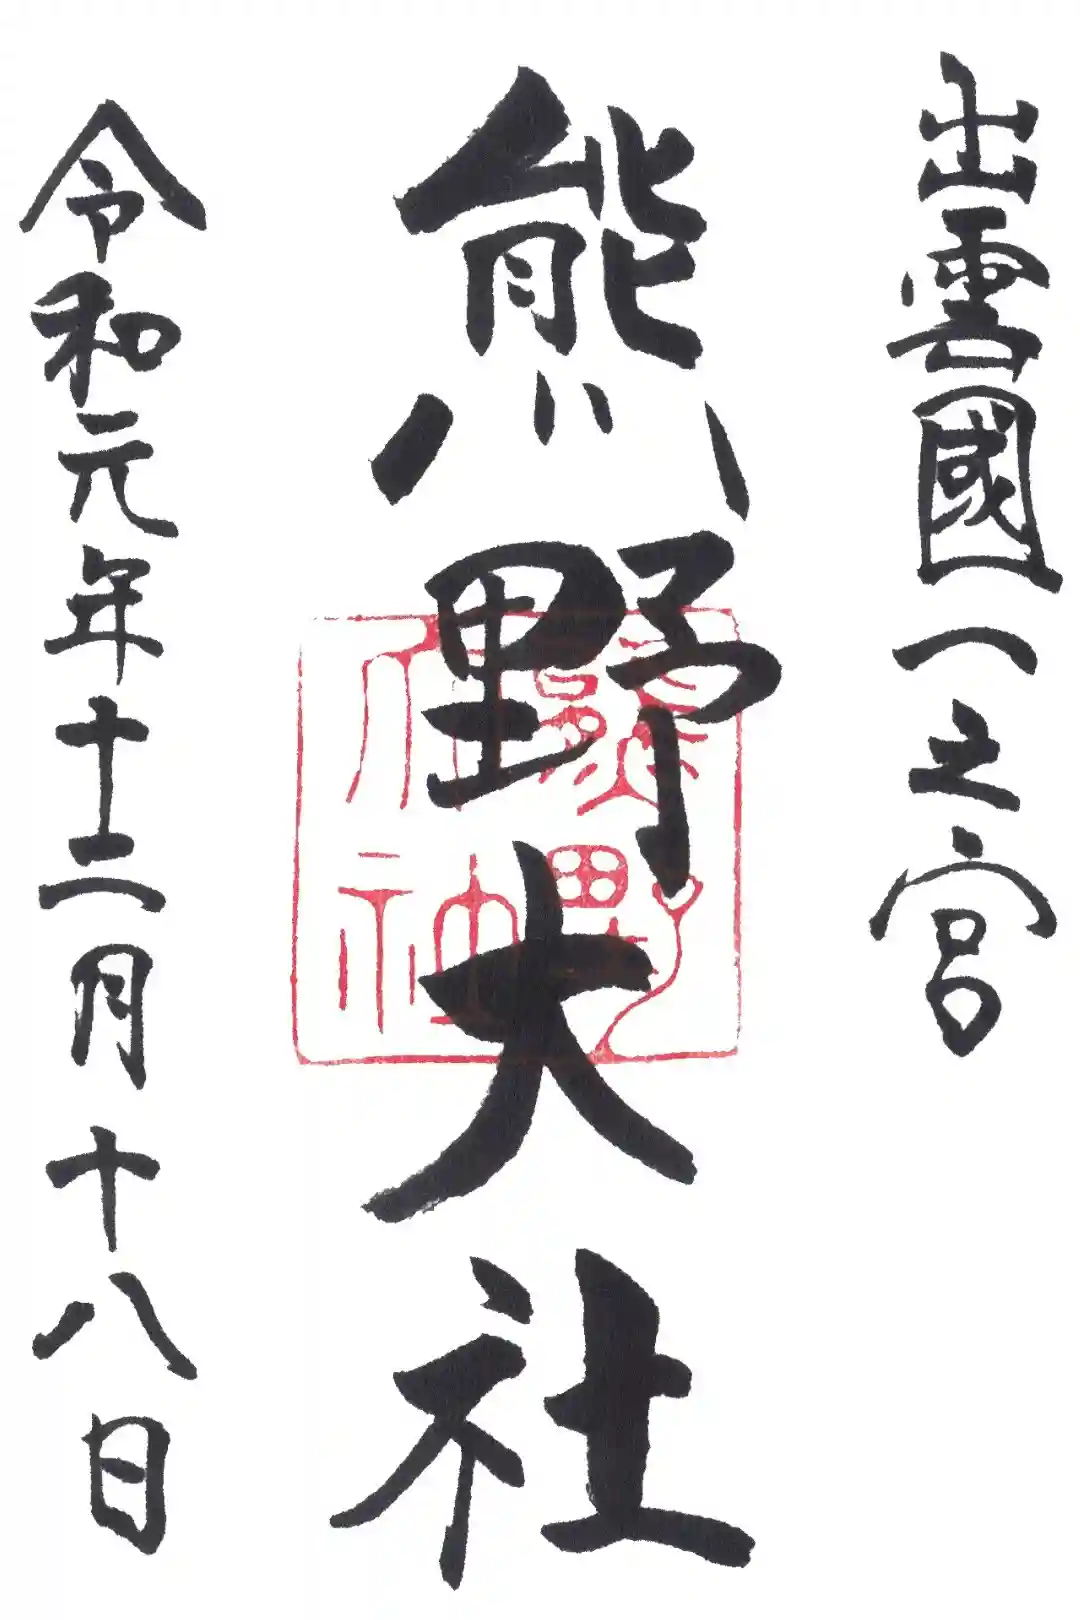 出雲國一之宮
熊野大社
令和元年十二月十八日